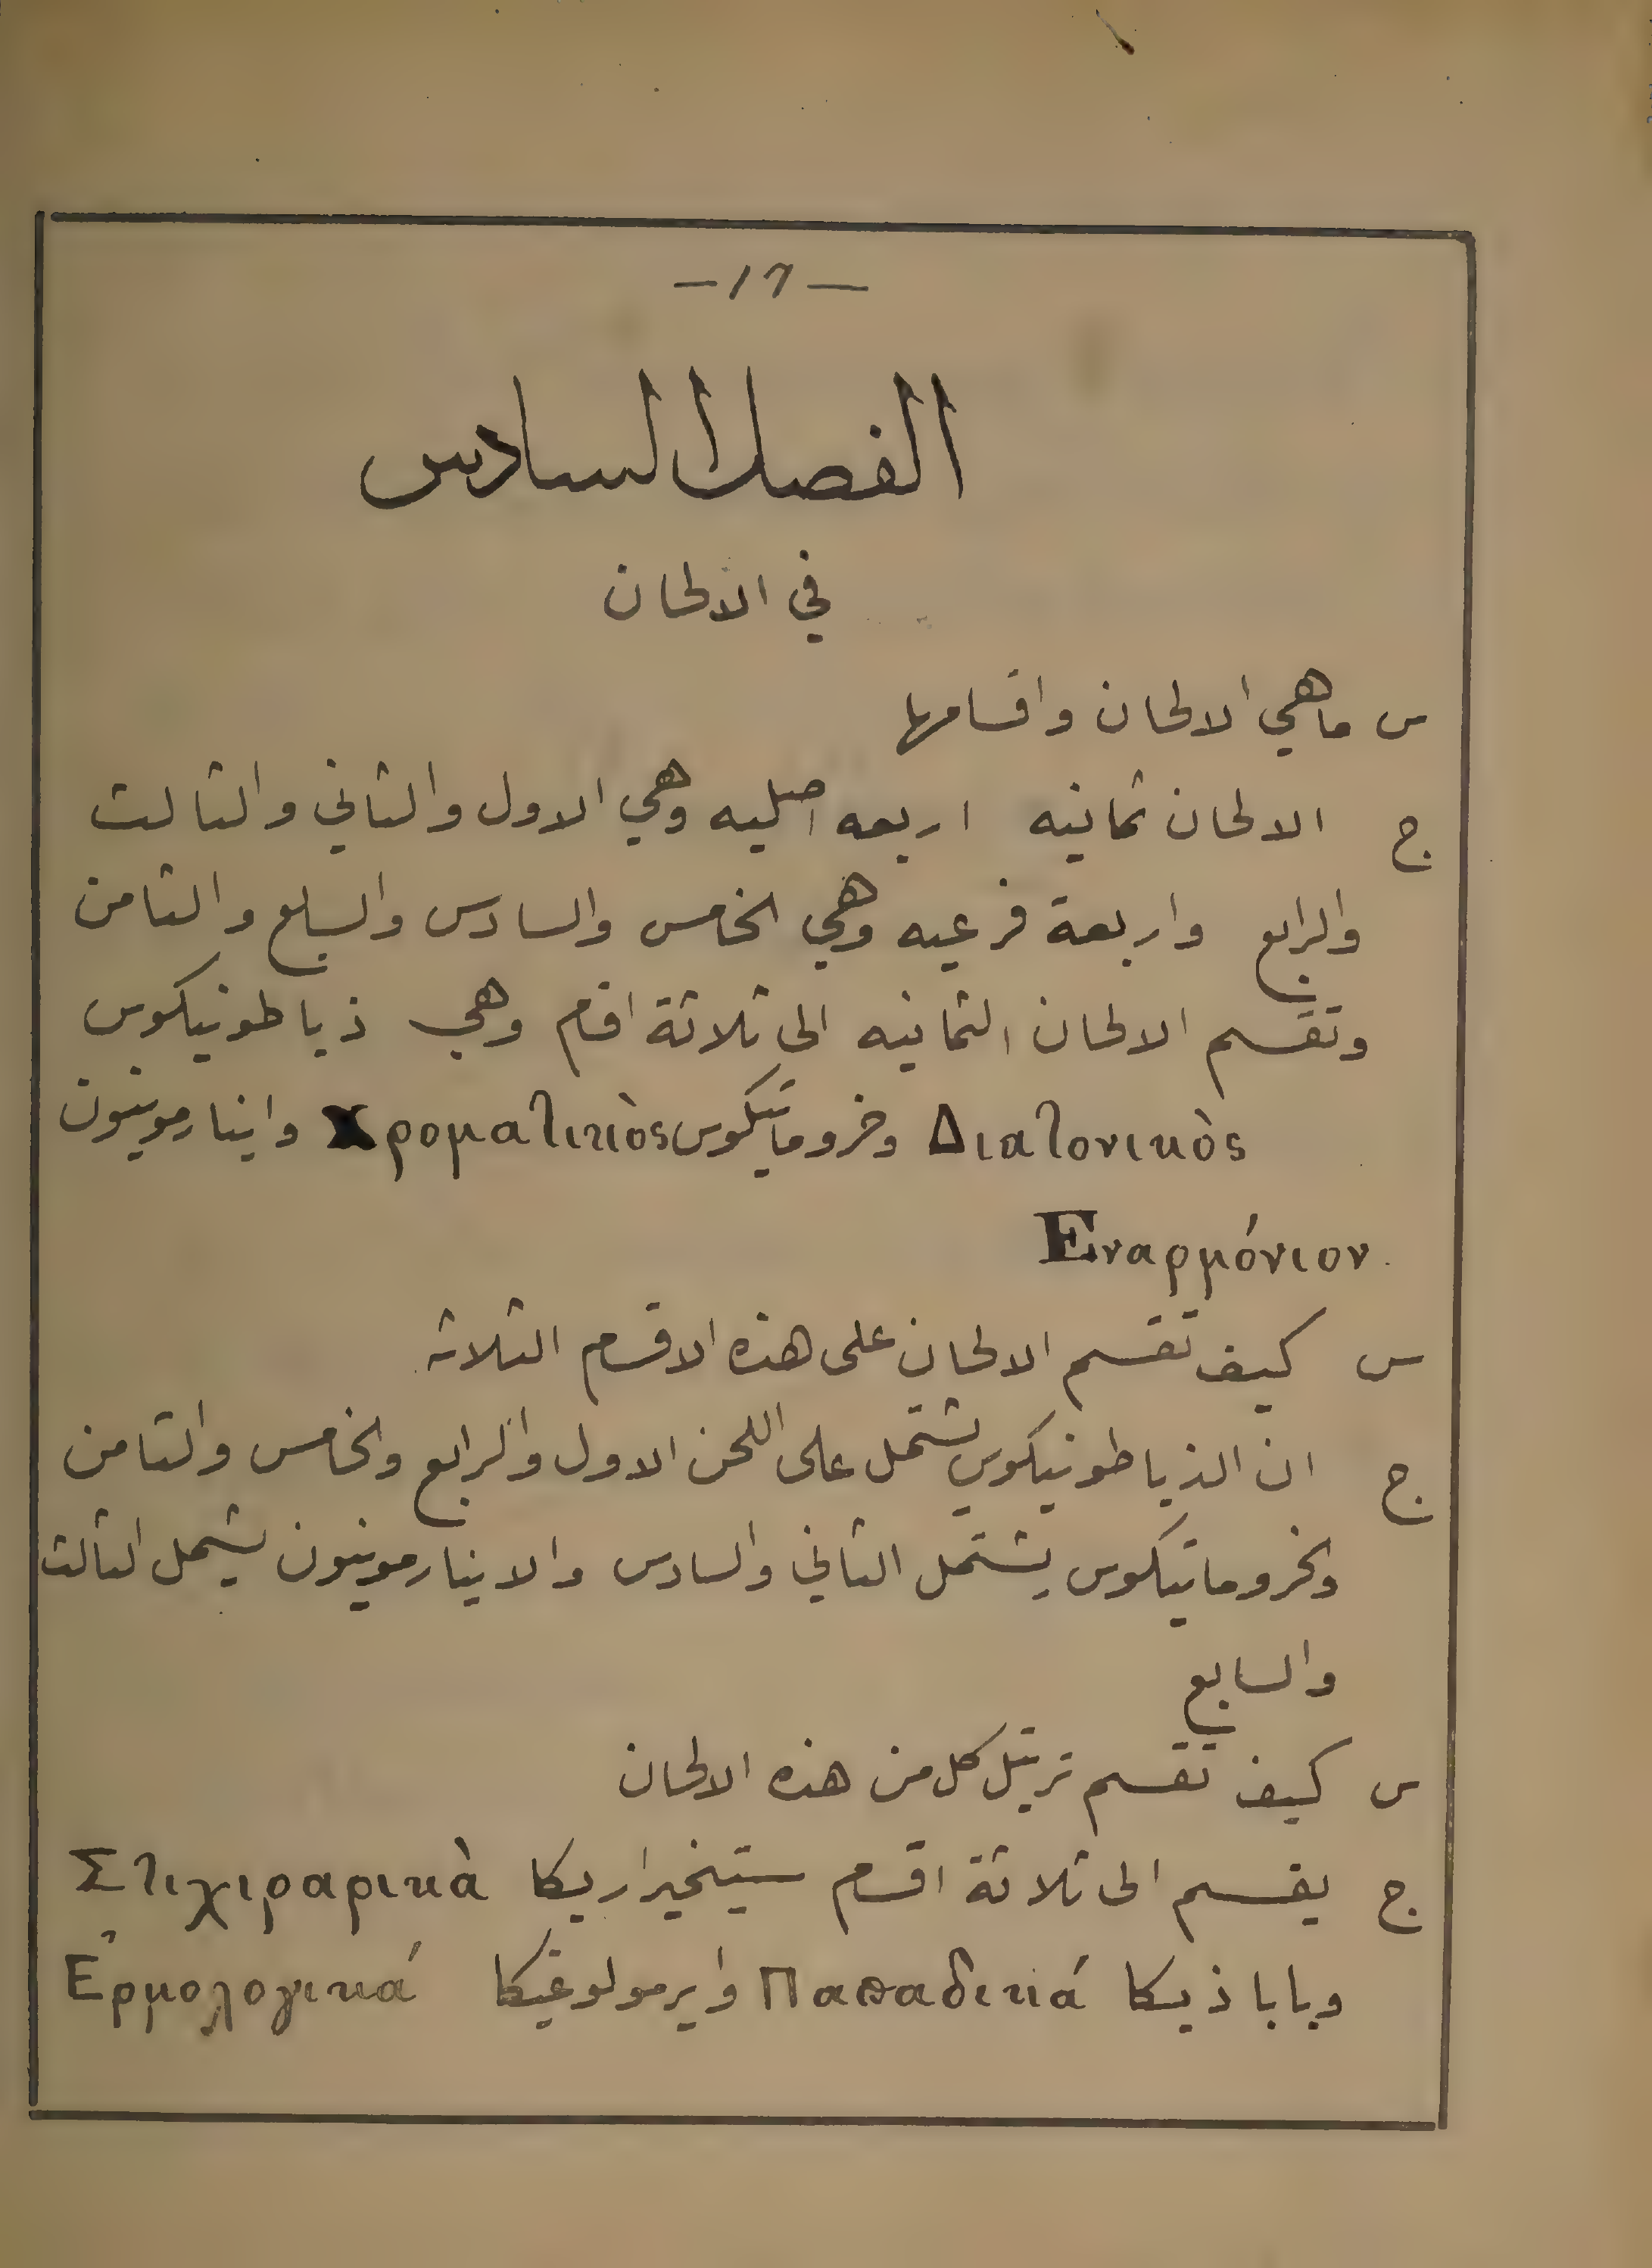 — ١٦ —
الفصل السادس
في الالحان
س ماهي الالحان واقسامها
ج الالحان ثمانيه اربعه اصليه وهي الاول والثاني والثالث
والرابع واربعة فرعيه وهي الخامس والسادس والسابع والثامن
وتقسم الالحان الثمانيه الى ثلاثة اقسام وهي ذياطونيكوس
Διατονικὸς وخروماتيكوس Χροματικὸς واينارمونيون
Εναρμόνιον.
س كيف تقسم الالحان على هذه الاقسام الثلاثه
ج ان الذياطونيكوس يشتمل على اللحن الاول والرابع والخامس والثامن
والخروماتيكوس يشتمل الثاني والسادس والاينارمونيون يشمل الثالث
والسابع
س كيف تقسم ترتيل كل من هذه الالحان
ج يقسم الى ثلاثة اقسام ستيخيراريكا Στιχιραρικὰ
وباباذيكا Παπαδικά وايرمولوغيكا Ἑρμολογικά